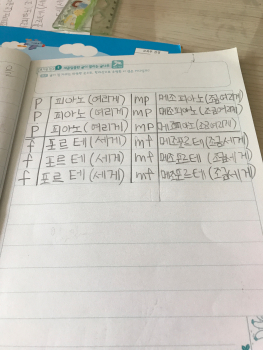 p 피아노(여리게) mp 메조피아노(조금여리게)
p 피아노(여리게) mp 메조피아노(조금여리게)
p 피아노(여리게) mp 메조피아노(조금여리게)
f 포르테(세게) mf 메조포르테(조금세게)
f 포르테(세게) mf 메조포르테(조금세게)
f 포르테(세게) mf 메조포르테(조금세게)